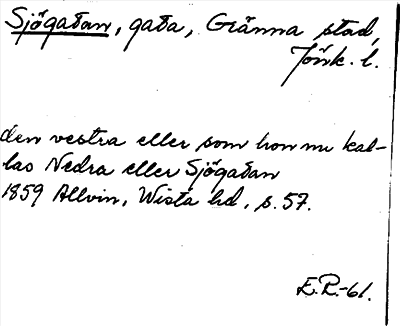 Sjögatan, gata, Gränna stad,
Jönk. l.
den vestra eller som hon nu kal-
las Nedra eller Sjögatan
1859 Allvin, Wista hd, s. 57.
E.P.-61.